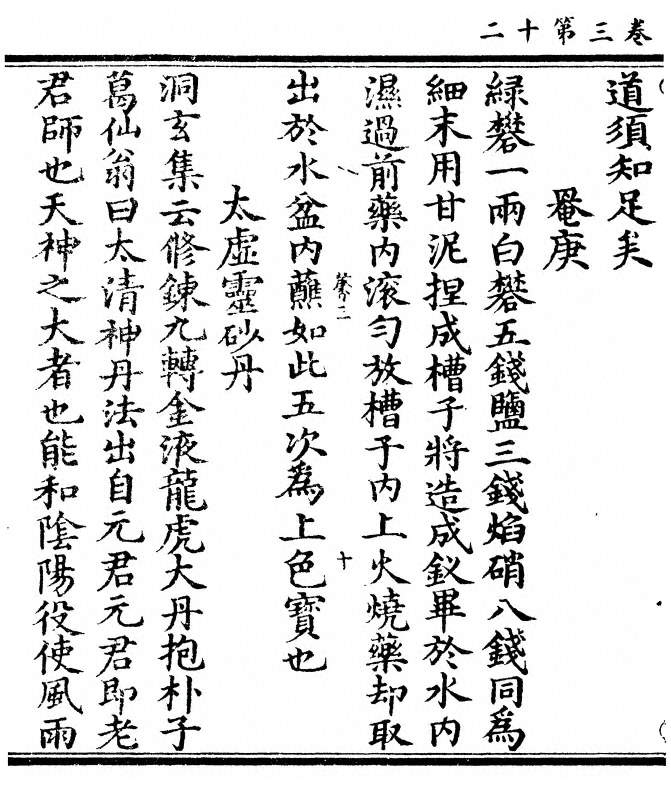 卷三第十二
道須知足矣
罨庚
緑礬一兩白礬五錢鹽三錢焰硝八錢同為
細末用甘泥捏成槽子將造成釵畢於水内
濕過前藥内滚匀放槽子内上火燒藥却取
三 十
出於水盆内蘸如此五次為上色寳也
太虛靈砂丹
洞玄集云修鍊九轉金液龍虎大丹抱朴子
葛仙翁曰太清神丹法出自元君元君即老
君師也天神之大者也能和陰陽役使風雨